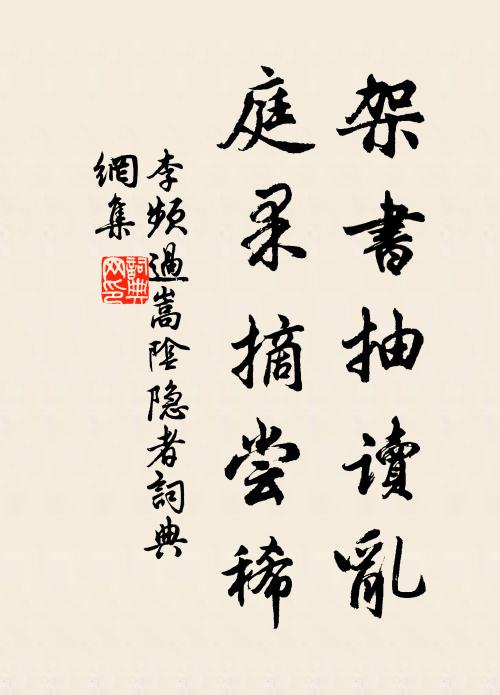 架書抽讀亂
庭果摘尝稀
李頻過嵩陰隐者詞典
網集
詞典網印